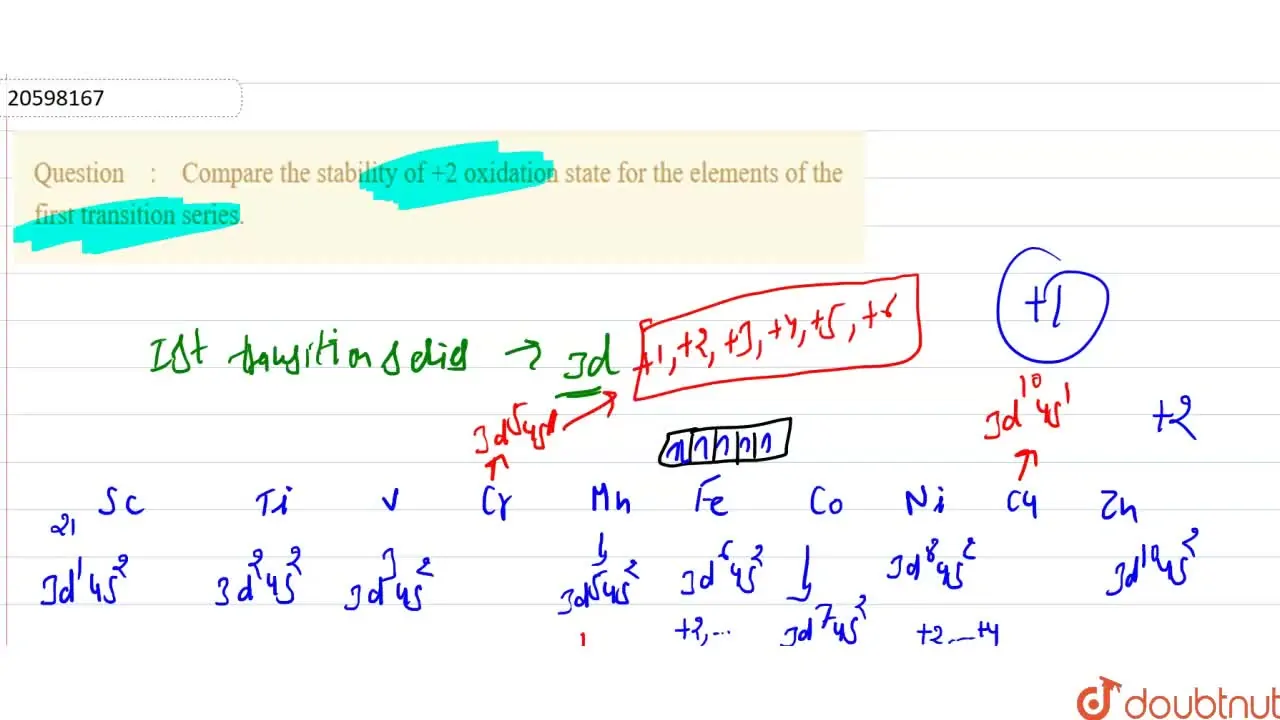 20598167
Question : Compare the stability of +2 oxidation state for the elements of the
first transition series.
+1
Ist transition series → 3d +1, +2, +3, +4, +5, +6
3d⁵4s¹ 3d¹⁰4s¹ +2
Sc Ti V Cr Mn Fe Co Ni Cu Zn
21
3d¹4s² 3d²4s² 3d³4s² 3d⁵4s² 3d⁶4s² 3d⁸4s² 3d¹⁰4s²
+2,... 3d⁷4s² +2...+4
doubtnut